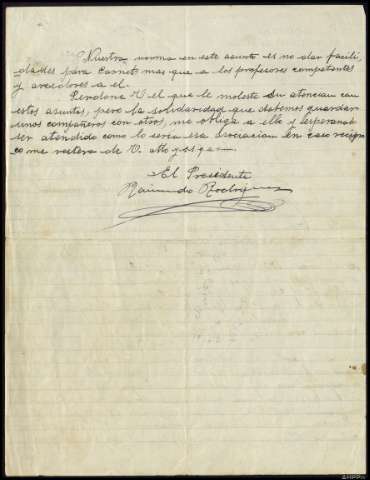 Nuestra norma en este asunto es no dar facili
dades para Carnets mas que a los profesores competentes
y acredores a el.
Perdone V. el que le moleste su atencion con
estos asuntos, pero la solidaridad que debemos guardar
unos compañeros con otros, me obliga a ello y esperando
ser atendido como lo seria esa Asociacion en caso reciproco
me reitero de V. atto y s.s.
El Presidente
Raimundo Rodriguez